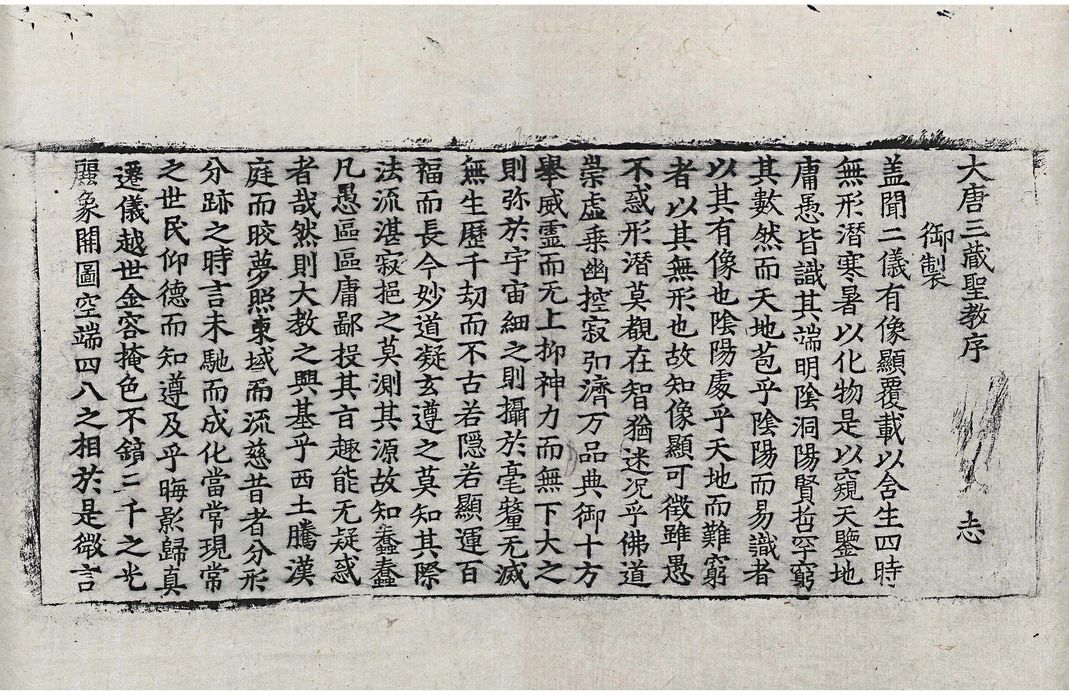 大唐三藏聖教序 志
御製
盖聞二儀有像顯覆載以含生四時
無形潜寒暑以化物是以窺天鑒地
庸愚皆識其端明陰洞陽賢哲罕窮
其數然而天地苞乎陰陽而易識者
以其有像也陰陽處乎天地而難窮
者以其無形也故知像顯可徵雖愚
不惑形潜莫覩在智猶迷况乎佛道
崇虛乗幽控寂弘濟万品典御十方
舉威靈而无上抑神力而無下大之
則弥於宇宙細之則攝於毫釐无滅
無生歷千劫而不古若隱若顯運百
福而長今妙道凝玄遵之莫知其際
法流湛寂挹之莫測其源故知蠢蠢
凡愚區區庸鄙投其旨趣能无疑惑
者哉然則大教之興基乎西土騰漢
庭而皎夢照東域而流慈昔者分形
分跡之時言未馳而成化當常現常
之世民仰德而知遵及乎晦影歸真
遷儀越世金容掩色不鏡三千之光
麗象開圖空端四八之相於是微言